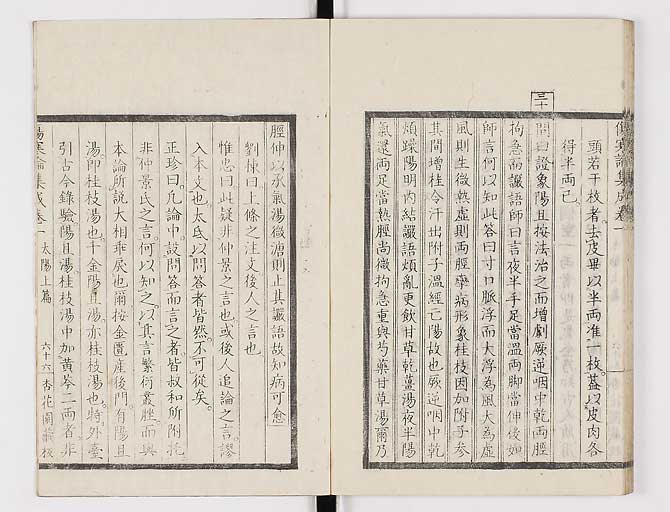 傷寒論集成卷一
頭若干枚者去皮畢以半兩准一枚葢以皮肉各
得半兩已
三十
問曰證象陽旦按法治之而增劇厥逆咽中乾兩脛
拘急而讝語師曰言夜半手足當溫兩脚當伸後如
師言何以知此答曰寸口脈浮而大浮為風大為虛
風則生微熱虛則兩脛攣病形象桂枝因加附子參
其間增桂令汗出附子溫經亡陽故也厥逆咽中乾
煩躁陽明內結讝語煩亂更飲甘草乾薑湯夜半陽
氣還兩足當熱脛尚微拘急重與芍藥甘草湯爾乃
脛伸以承氣湯微溏則止其讝語故知病可愈
劉棟曰上條之注文後人之言也
惟忠曰此疑非仲景之言也或後人追論之言謬
入本文也太氐以問答者皆然不可從矣
正珍曰凡論中設問答而言之者皆叔和所附托
非仲景氏之言何以知之以其言繁衍叢脞而與
本論所說大相乖戾也爾按金匱產後門有陽旦
湯即桂枝湯也千金陽旦湯亦桂枝湯也特外臺
引古今錄驗陽旦湯桂枝湯中加黃芩二兩者非
傷寒論集成卷一
太陽上篇
六十六
杏花園藏板